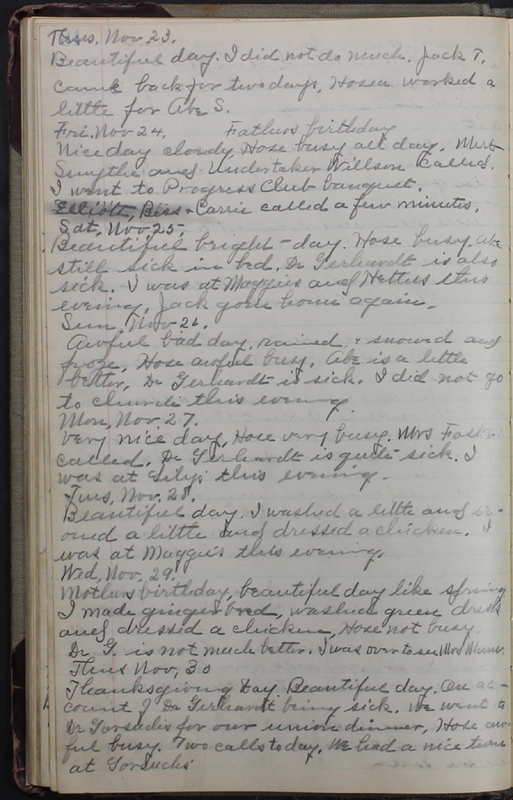 Thurs. Nov 23.
Beautiful day. I did not do much. Jack T.
came back for two days, Hosea worked a
little for Abe S.
Fri. Nov 24. Fathers birthday
Nice day cloudy Hose busy all day. Mert
Smythe and Undertaker Willson called.
I went to Progress Club banquet.
Elliott, Bess + Carrie called a few minutes.
Sat, Nov 25,
Beautiful bright day. Hose busy. Abe
still sick in bed. Dr Gerhardt is also
sick. I was at Maggies and Netties this
evening. Jack gone home again.
Sun, Nov 26.
Awful bad day, rained + snowed and
froze, Hose awful busy. Abe is a little
better, Dr Gerhardt is sick. I did not go
to church this evening.
Mon, Nov 27.
Very nice day, Hose very busy. Mrs
called. Dr Gerhardt is quite sick. I
was at Lily's this evening.
Tues, Nov, 28.
Beautiful day. I washed a little and ir-
oned a little and dressed a chicken. I
was at Maggie's this evening.
Wed, Nov, 29.
Mothers birthday, beautiful day like spring
I made ginger bred, washed green dress
and dressed a chicken, Hose not busy.
Dr. G. is not much better. I was over to see Mrs
Thus Nov, 30
Thanksgiving Day. Beautiful day. On ac-
count of Dr Gerhardt being sick. We went to
Dr Gorsuchs for our union dinner, Hose aw-
ful busy. Two calls today. We had a nice time
at Gorsuchs'